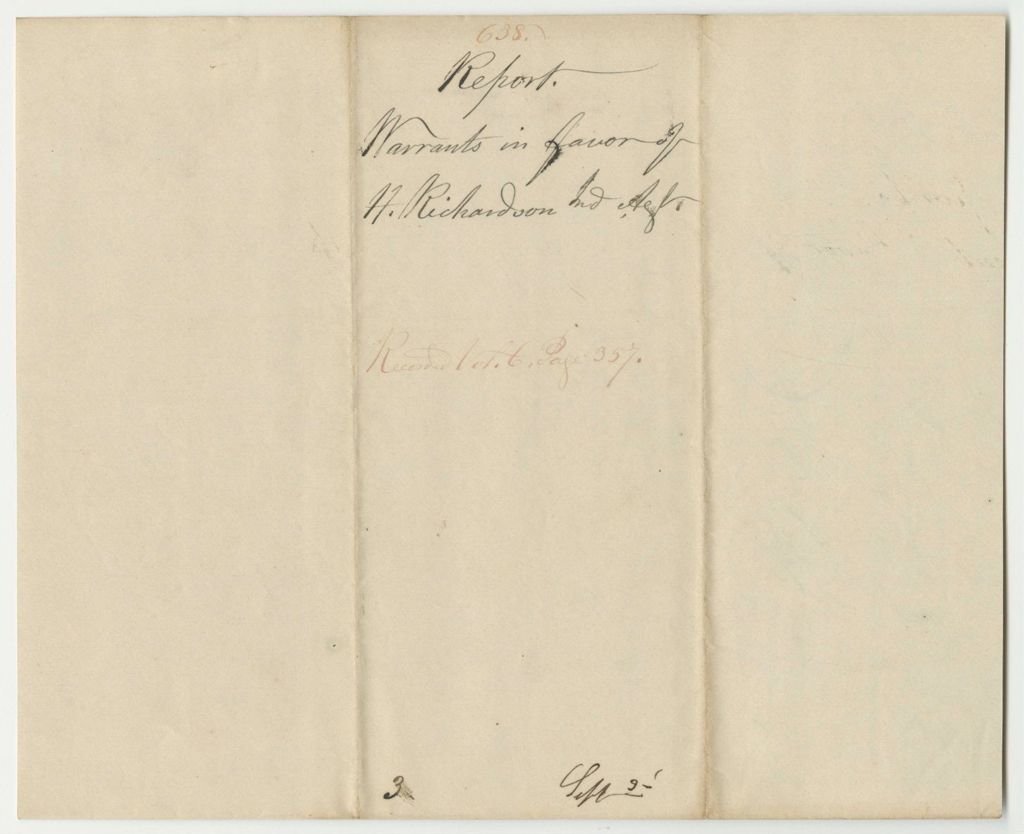 638.
Report.
Warrants in favor of
H. Richardson Ind Agt.
Recorded Vol. 6. Page 357.
3 Sept 3